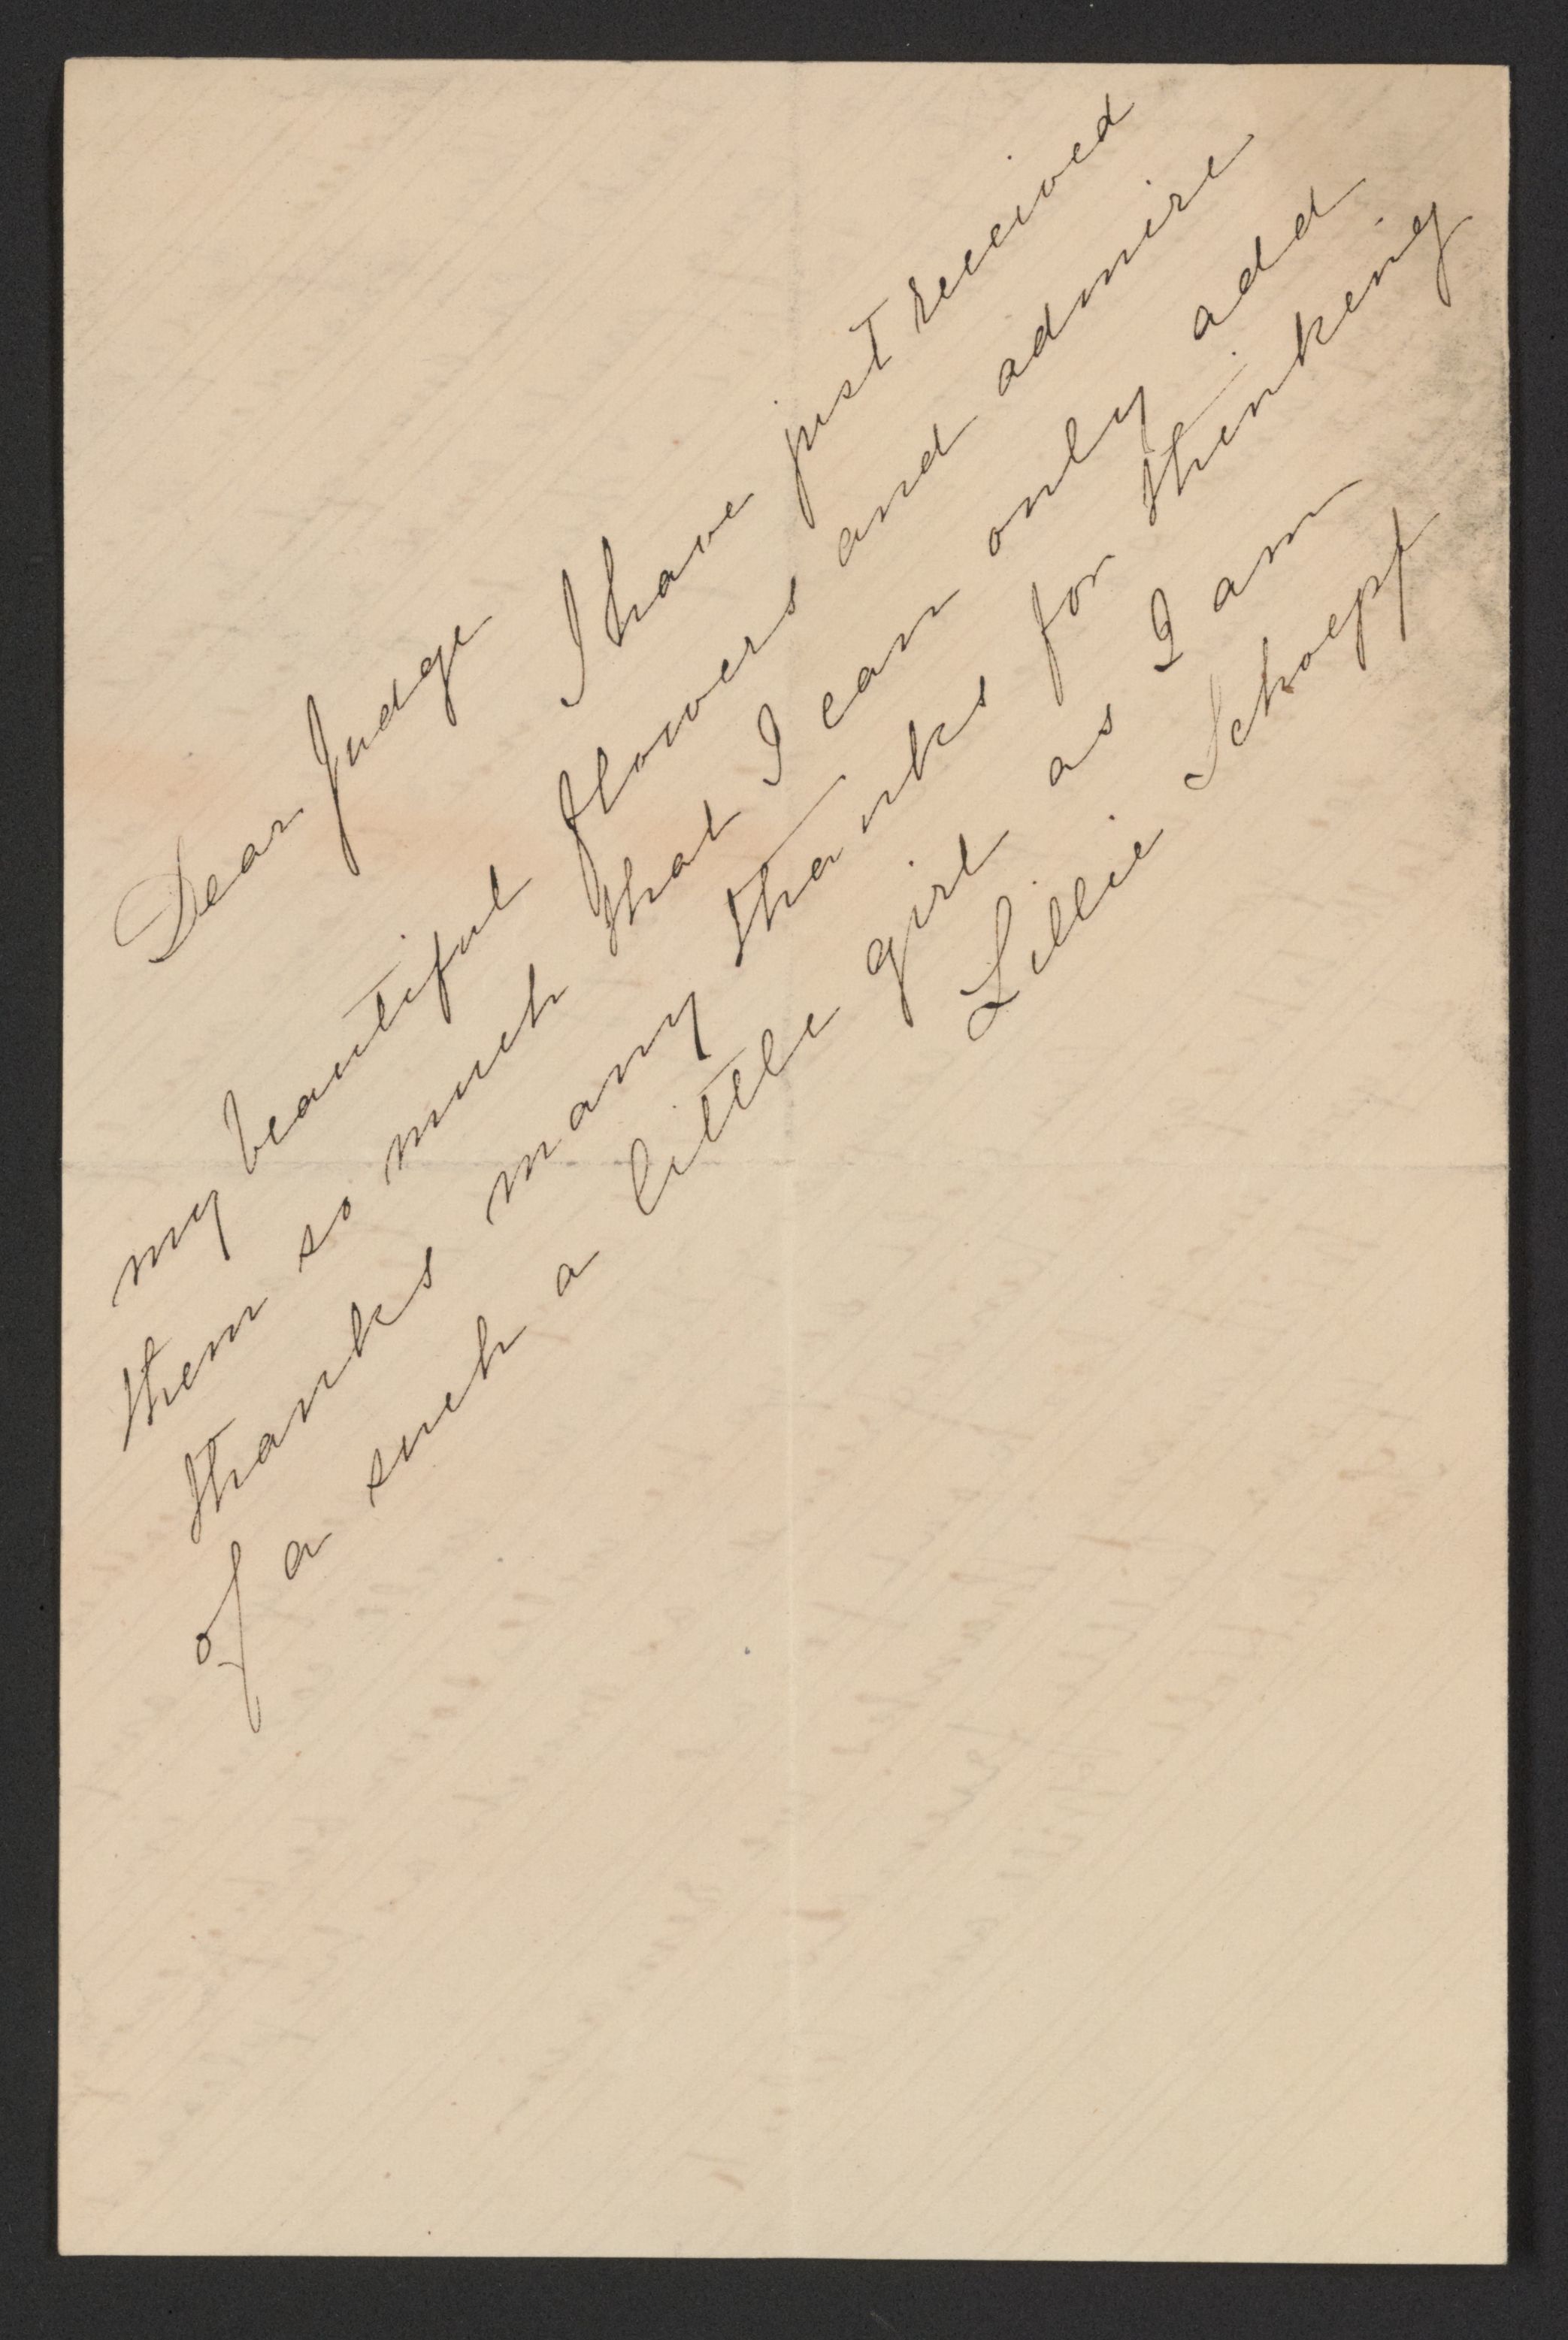 Dear Judge I have just received
my beautiful flowers and admire
them so much that I can only add
thanks many thanks for thinking
of a such a little girl as I am
Lillie Schoepf